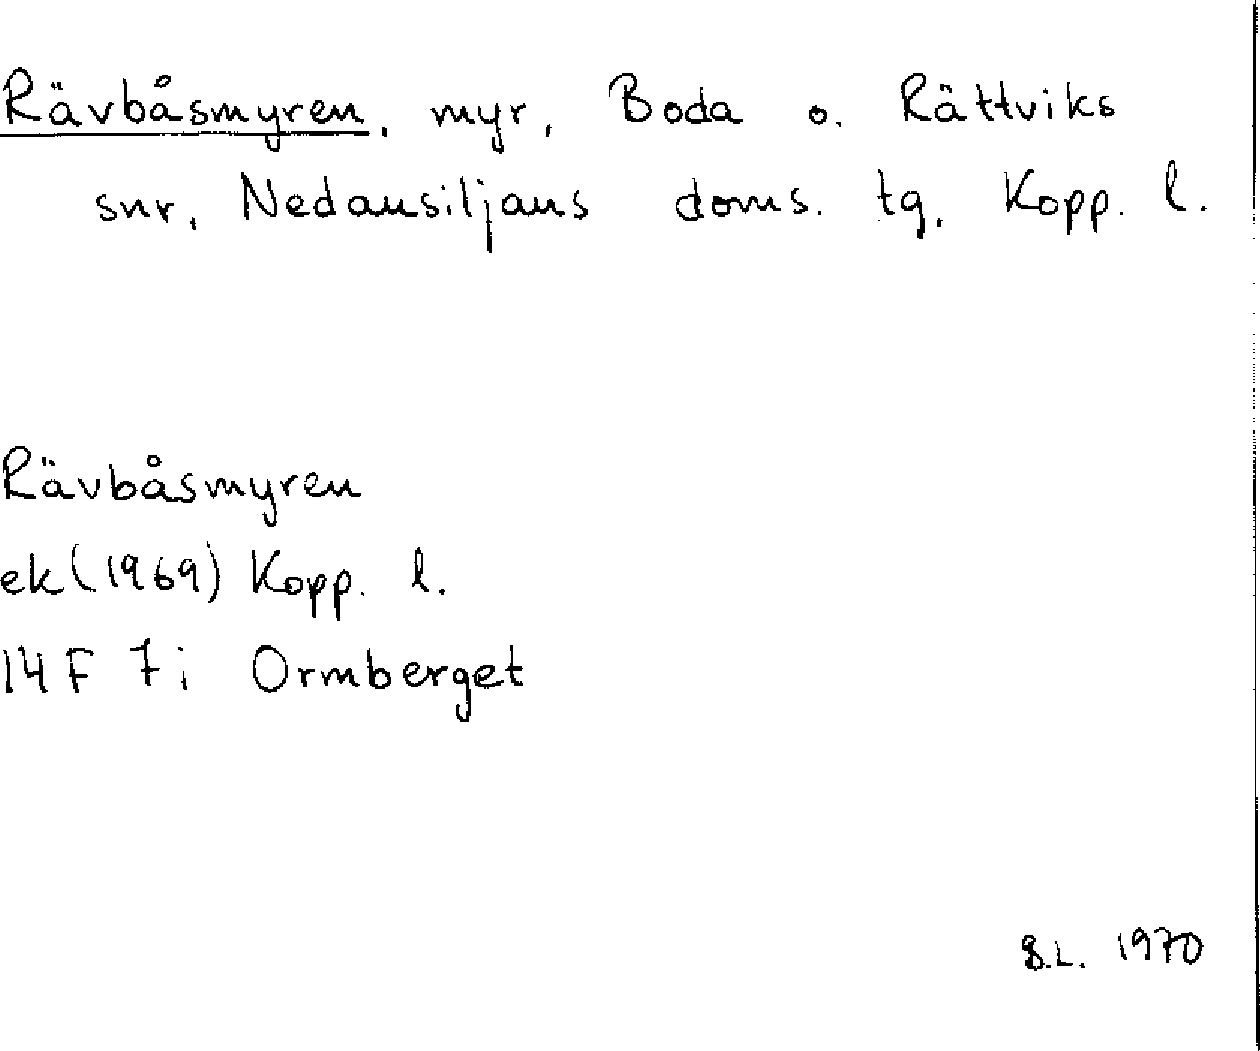 Rävbåsmyren, myr, Boda o. Rättviks
snr, Nedansiljans doms. tg, Kopp. l.
Rävbåsmyren
ek (1969) Kopp. l.
14 F 7i Ormberget
B.L. 1970